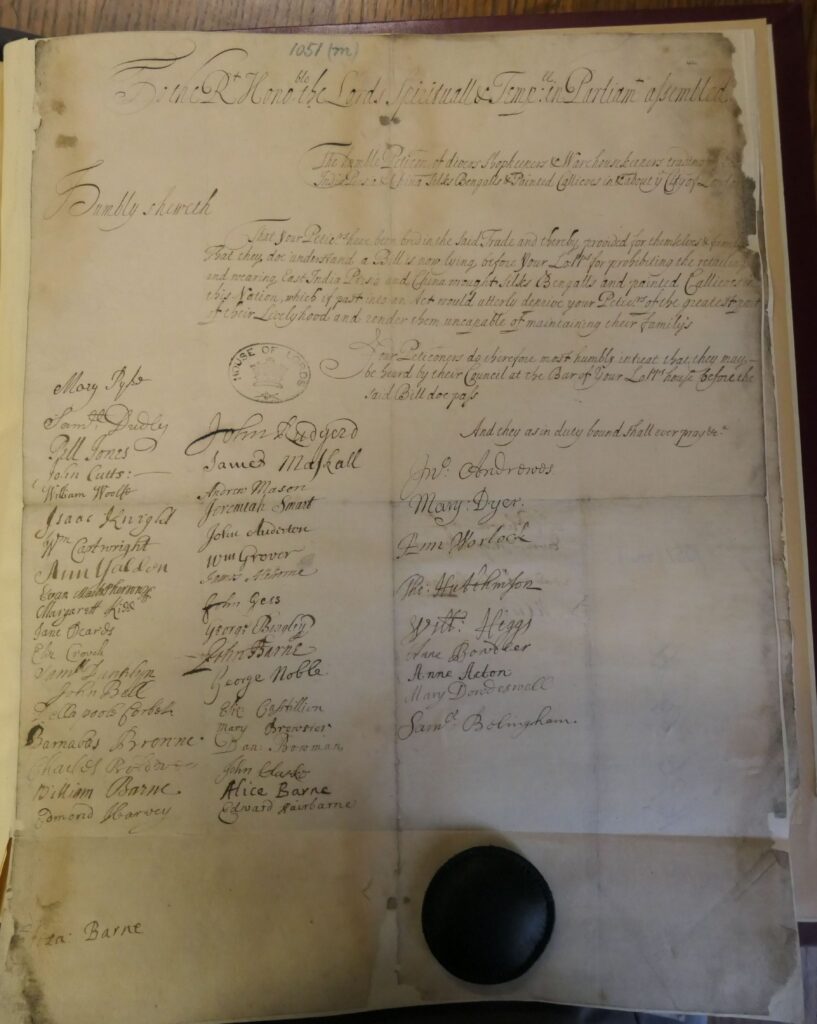 1051 (m)
To the Rt Honoble the Lords Spirituall & Templl in Parliamt assembled
The humble Peticon of divers Shopkeepers & Warehousekeepers trading
India Persia & China Silks Bengalls & Painted Callicoes in & about ye City of
Humbly sheweth
That Your Peticrs have been bred in the said Trade and thereby provided for themselves &
That they doe understand a Bill is now lying before Your Lopps for prohibiting the
and wearing East India Persia and China wrought Silks Bengalls and painted Callicoes in
this Nation, which if past into an Act would utterly deprive your Peticrs of the greatest part
of their Livelyhood and render them uncapable of maintaining their familys
Your Peticoners do therefore most humbly intreat that they may
be heard by their Council at the Bar of Your Lopps house before the
said Bill doe pass
And they as in duty bound shall ever pray &c
HOUSE OF LORDS
Mary Pyke
Samll Dudley
Pell Jones
John Cutts
William Woolfe
Isaac Knight
Wm Cartwright
Ann
Evan
Margarett Kidd
Jane Deards
Eliz Crouch
Samll
John Bell
Barnabas Bronne
Charles
William Barne
Edmond Harvey
Barne
John Rudyerd
James Maskall
Andrew Mason
Jeremiah Smart
John Anderton
Wm Grover
James
John Gess
George Beagley
John Barne
George Noble
Eliz Castillion
Mary Brewster
Dan: Bowman
John
Alice Barne
Edward Fairbarne
Jno. Andrewes
Mary: Dyer:
Ann Worlock
Tho: Hutchinson
Willm: Heggs
Bowdler
Anne Acton
Mary Dowdeswell
Samll Bolingham.